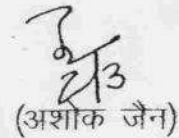 (अशोक जैन)